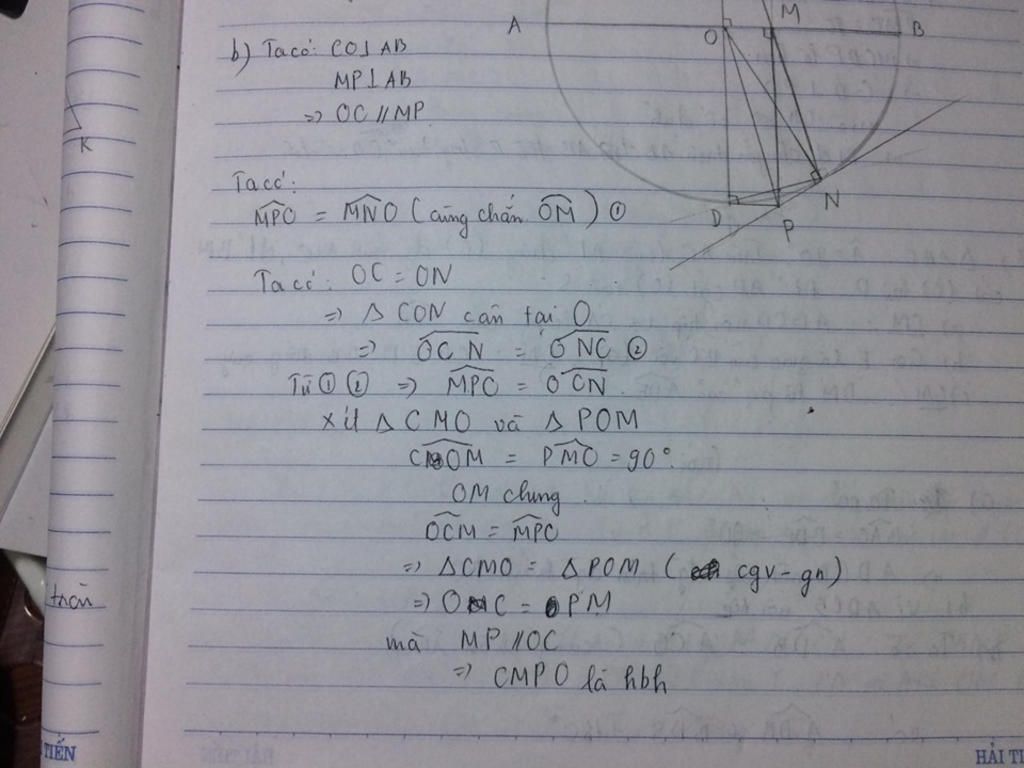 A
O
M
B
b) Ta có: CO⊥AB
MP⊥AB
=> OC//MP
K
Ta có:
D
P
N
MPO = MNO (cùng chắn OM) ①
Ta có: OC = ON
=> Δ CON cân tại O
=> OCN = ONC ②
Từ ① ② => MPO = OCN
xét Δ CMO và Δ POM
COM = PMO = 90°
OM chung
OCM = MPO
=> ΔCMO = ΔPOM (cgv - gn)
=> OC = PM
mà MP//OC
=> CMPO là hbh
tròn
TIẾN
HẢI TI